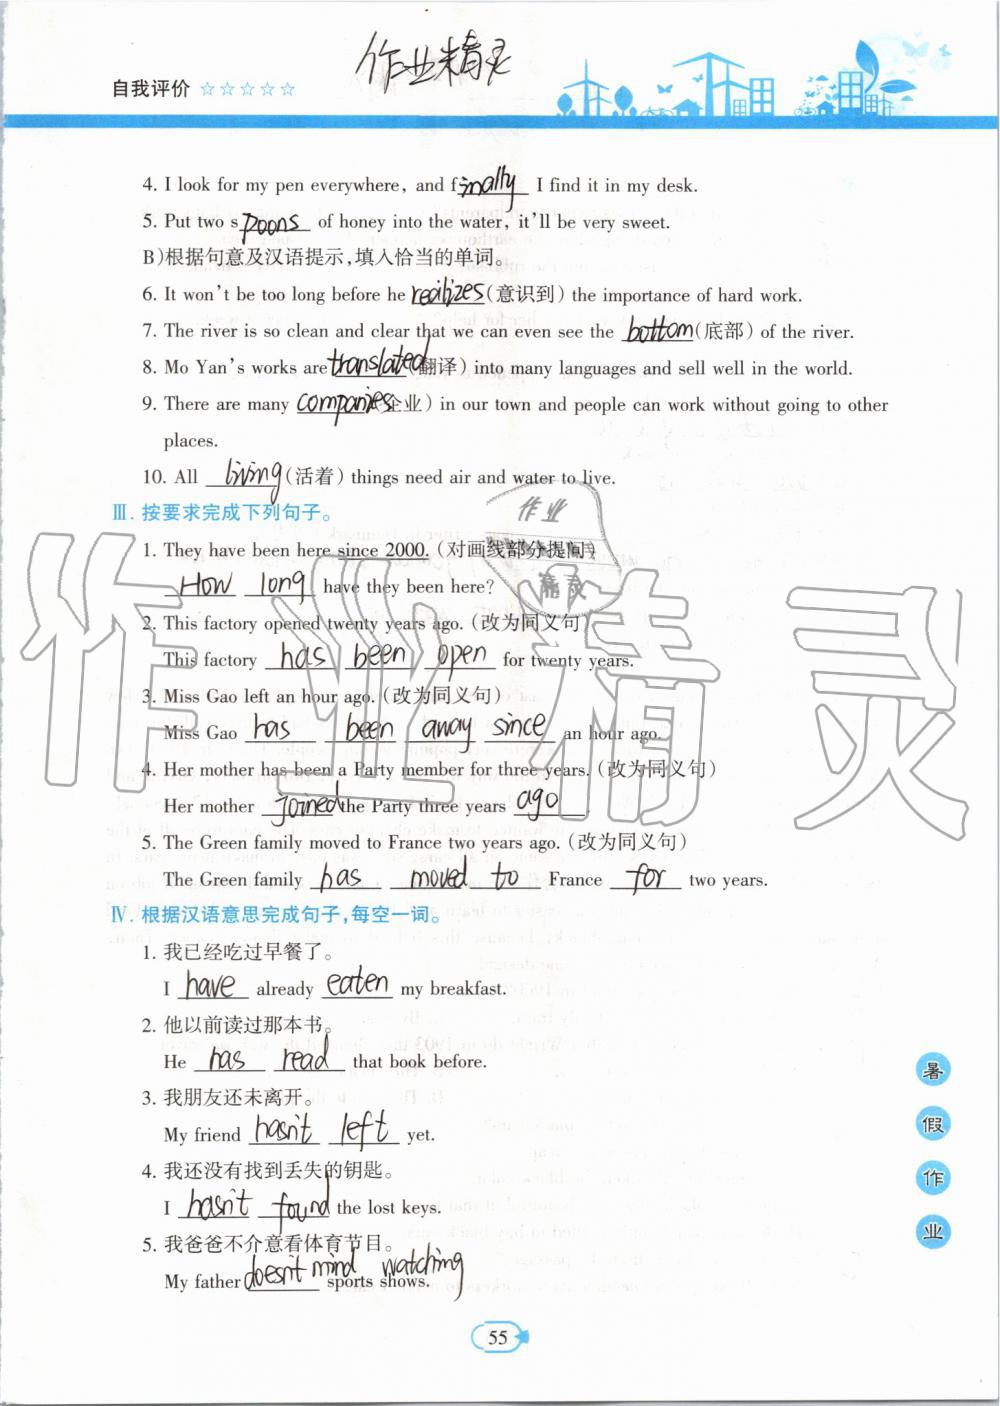 作业精灵
自我评价 ☆☆☆☆☆
4. I look for my pen everywhere, and finally I find it in my desk.
5. Put two spoons of honey into the water, it'll be very sweet.
B)根据句意及汉语提示,填入恰当的单词。
6. It won't be too long before he realizes(意识到) the importance of hard work.
7. The river is so clean and clear that we can even see the bottom(底部) of the river.
8. Mo Yan's works are translated(翻译) into many languages and sell well in the world.
9. There are many companies(企业) in our town and people can work without going to other
places.
10. All living(活着) things need air and water to live.
Ⅲ. 按要求完成下列句子。
1. They have been here since 2000. (对画线部分提问)
How long have they been here?
2. This factory opened twenty years ago. (改为同义句)
This factory has been open for twenty years.
3. Miss Gao left an hour ago. (改为同义句)
Miss Gao has been away since an hour ago.
4. Her mother has been a Party member for three years. (改为同义句)
Her mother joined the Party three years ago.
5. The Green family moved to France two years ago. (改为同义句)
The Green family has moved to France for two years.
Ⅳ. 根据汉语意思完成句子,每空一词。
1. 我已经吃过早餐了。
I have already eaten my breakfast.
2. 他以前读过那本书。
He has read that book before.
3. 我朋友还未离开。
My friend hasn't left yet.
4. 我还没有找到丢失的钥匙。
I hasn't found the lost keys.
5. 我爸爸不介意看体育节目。
My father doesn't mind watching sports shows.
暑
假
作
业
55
作业精灵
作业
精灵